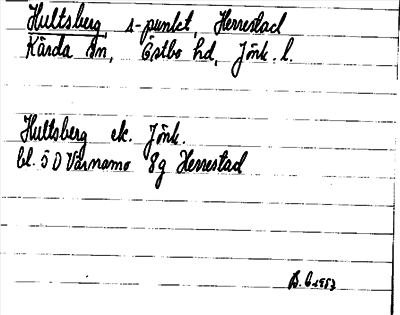 Hultsberg, s-punkt, Herrestad
Kärda sn, Östbo hd, Jönk. l.
Hultsberg ek. Jönk.
bl. 5D Värnamo 8g Herrestad
1953